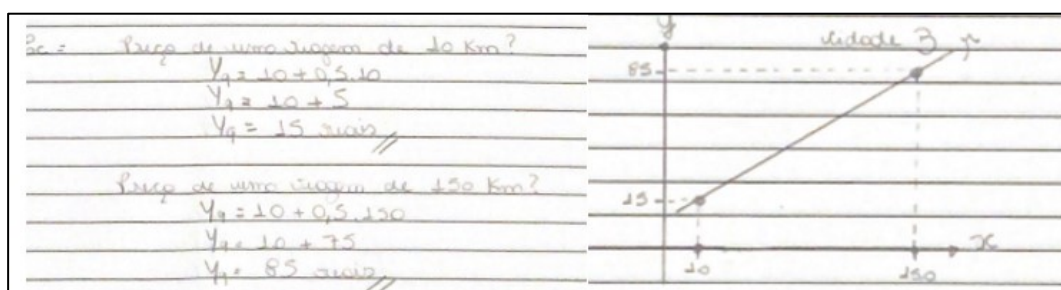 Preço de uma viagem de 10 Km?
Y₉ = 10 + 0,5.10
Y₉ = 10 + 5
Y₉ = 15 reais
Preço de uma viagem de 150 Km?
Y₉ = 10 + 0,5.150
Y₉ = 10 + 75
Y₉ = 85 reais
y
cidade 3
85
15
x
10
150